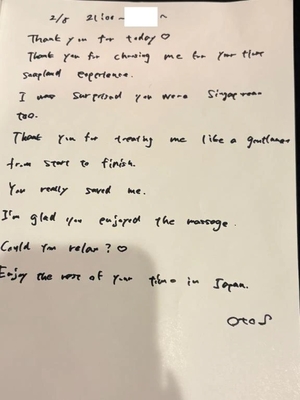 2/8 21:00~ ~
Thank you for today♡
Thank you for choosing me for your first
soapland experience.
I was surprised you were Singaporean
too.
Thank you for treating me like a gentleman
from start to finish.
You really saved me.
I'm glad you enjoyed the massage.
Could you relax?♡
Enjoy the rest of your time in Japan.